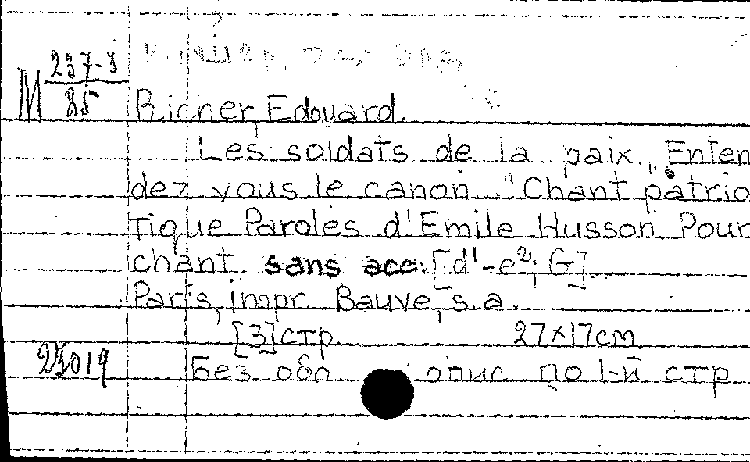 M 237-3
85
Richer, Edouard.
Les soldats de la paix. "Enten
dez vous le canon." Chant patrio
tique Paroles d'Emile Husson Pour
chant sans acc. [d'-e²; G].
Paris, impr. Bauve, s.a.
[3] стр. 27x17см
Без обл. опис. по 1-й стр